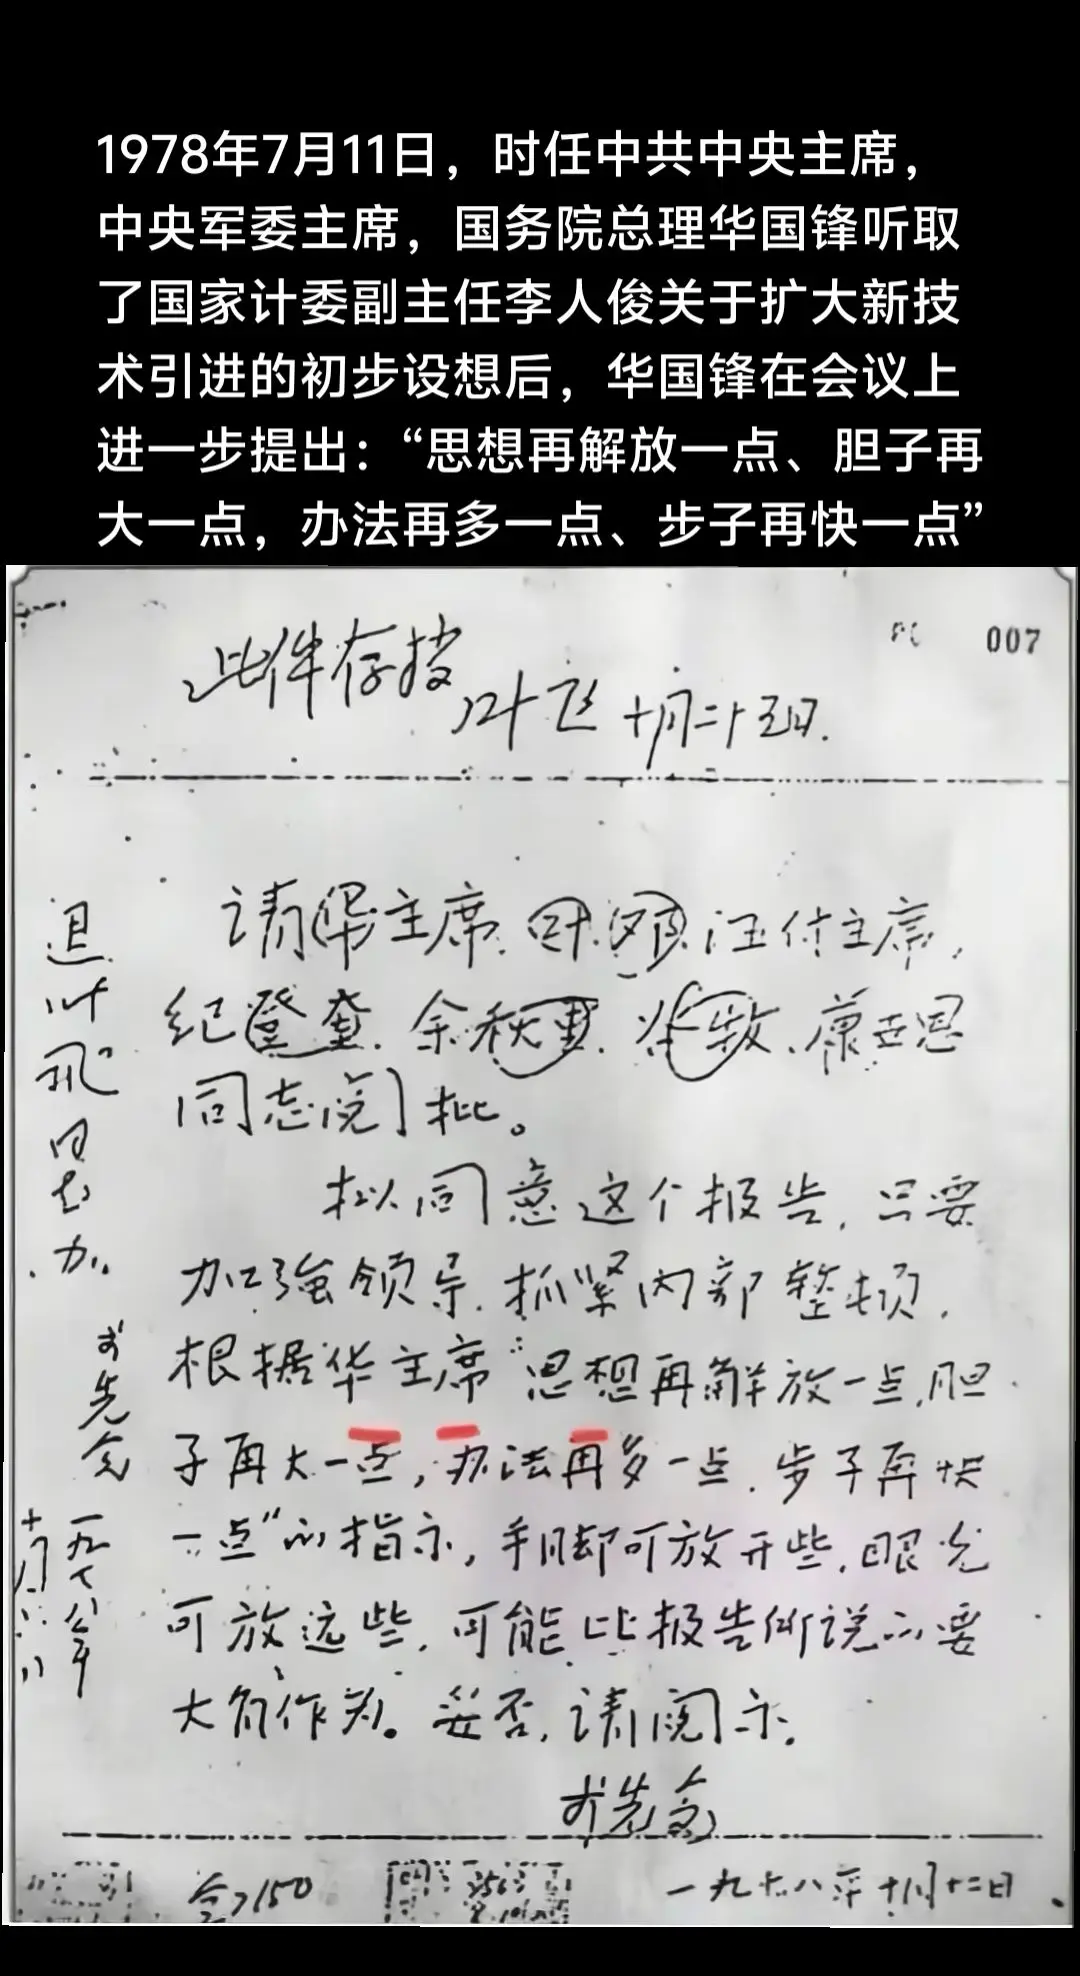 1978年7月11日，时任中共中央主席，
中央军委主席，国务院总理华国锋听取
了国家计委副主任李人俊关于扩大新技
术引进的初步设想后，华国锋在会议上
进一步提出：“思想再解放一点、胆子再
大一点，办法再多一点、步子再快一点”
007
此件存挡
叶飞 十月二十五日.
请华主席、叶、邓、汪付主席，
纪登奎、余秋里、谷牧、康世恩
同志阅批。
拟同意这个报告，只要
加強领导，抓紧内部整顿，
根据华主席“思想再解放一点，胆
子再大一点，办法再多一点，步子再快
一点”的指示，手脚可放开些，眼光
可放远些，可能比报告所说的要
大有作为。妥否，请阅示。
李先念
一九七八年十月十二日
退叶飞同志办
李先念
一九七八年